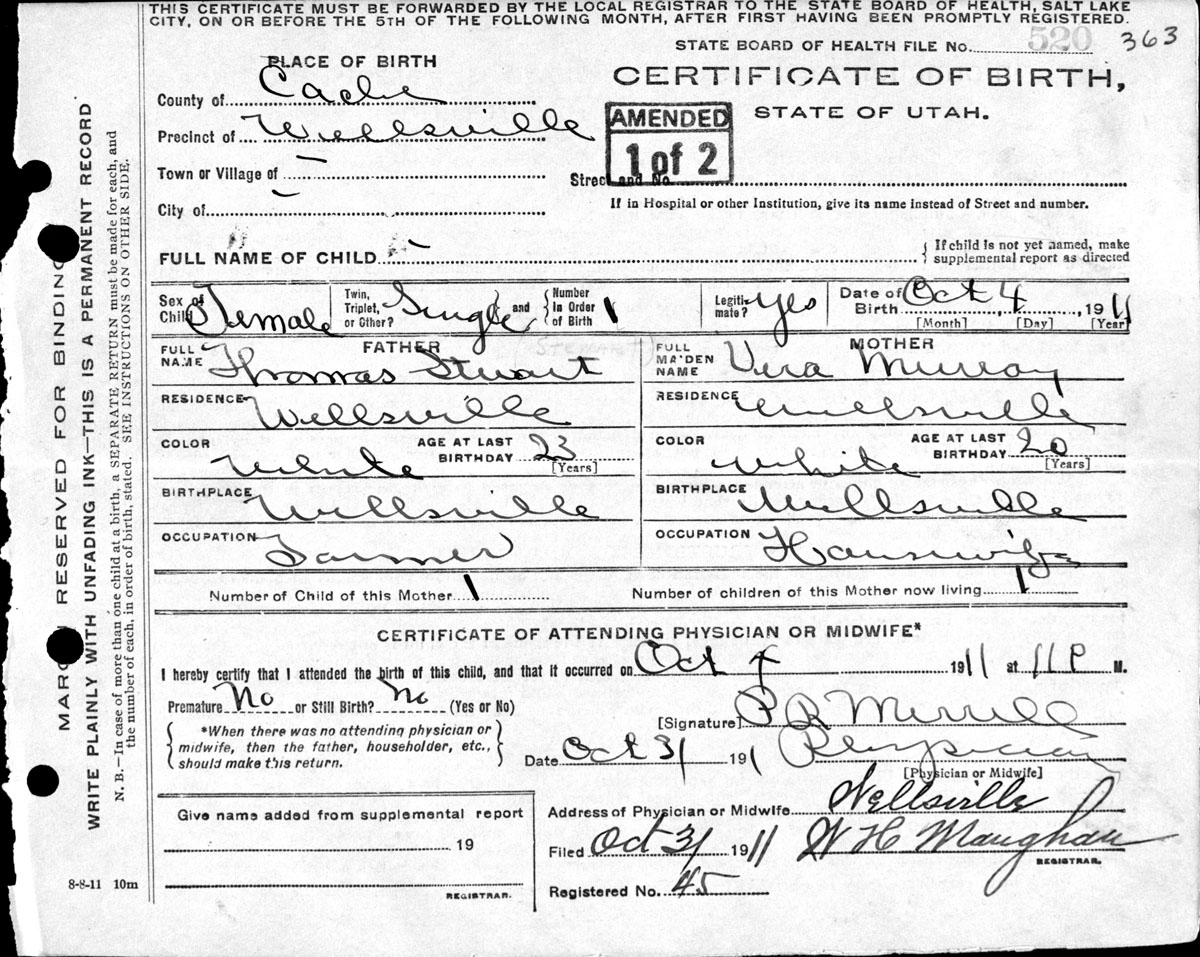 THIS CERTIFICATE MUST BE FORWARDED BY THE LOCAL REGISTRAR TO THE STATE BOARD OF HEALTH, SALT LAKE
CITY, ON OR BEFORE THE 5TH OF THE FOLLOWING MONTH, AFTER FIRST HAVING BEEN PROMPTLY REGISTERED.
STATE BOARD OF HEALTH FILE No. 520 363
PLACE OF BIRTH
CERTIFICATE OF BIRTH,
STATE OF UTAH.
County of Cache
AMENDED
1 of 2
Precinct of Wellsville
Town or Village of –
Street and No.
City of –
If in Hospital or other Institution, give its name instead of Street and number.
FULL NAME OF CHILD –
{ If child is not yet named, make
supplemental report as directed
Sex of Child Female
Twin, Triplet, or Other? Single and { Number In Order of Birth 1
Legitimate? Yes
Date of Birth Oct 4, 1911
[Month] [Day] [Year]
FATHER
(STEWART)
FULL NAME Thomas Stuart
MOTHER
FULL MAIDEN NAME Vera Murray
RESIDENCE Wellsville
RESIDENCE Wellsville
COLOR White AGE AT LAST BIRTHDAY 23 [Years]
COLOR White AGE AT LAST BIRTHDAY 20 [Years]
BIRTHPLACE Wellsville
BIRTHPLACE Wellsville
OCCUPATION Farmer
OCCUPATION Housewife
Number of Child of this Mother 1
Number of children of this Mother now living 1
CERTIFICATE OF ATTENDING PHYSICIAN OR MIDWIFE*
I hereby certify that I attended the birth of this child, and that it occurred on Oct 4 1911 at 11 P M.
Premature No or Still Birth? No (Yes or No)
[Signature] P R Merrill
{ *When there was no attending physician or
midwife, then the father, householder, etc.,
should make this return. }
Date Oct 31 1911 Physician
[Physician or Midwife]
Address of Physician or Midwife Wellsville
Filed Oct 31 1911 W H Maughan
REGISTRAR.
Registered No. 45
Give name added from supplemental report
19
REGISTRAR.
8-8-11 10m
MARGIN RESERVED FOR BINDING
WRITE PLAINLY WITH UNFADING INK—THIS IS A PERMANENT RECORD
N. B.—In case of more than one child at a birth, a SEPARATE RETURN must be made for each, and
the number of each, in order of birth, stated. SEE INSTRUCTIONS ON OTHER SIDE.